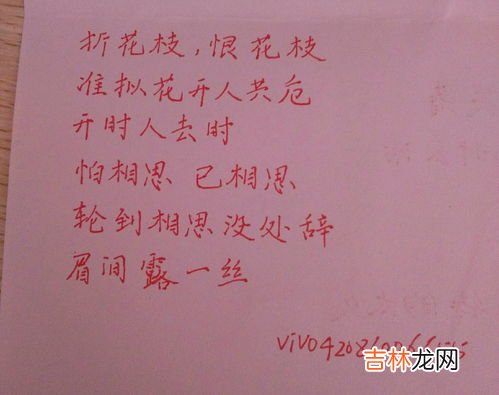 折花枝，恨花枝
准拟花开人共危
开时人去时
怕相思 已相思
轮到相思没处辞
眉间露一丝
吉林龙网